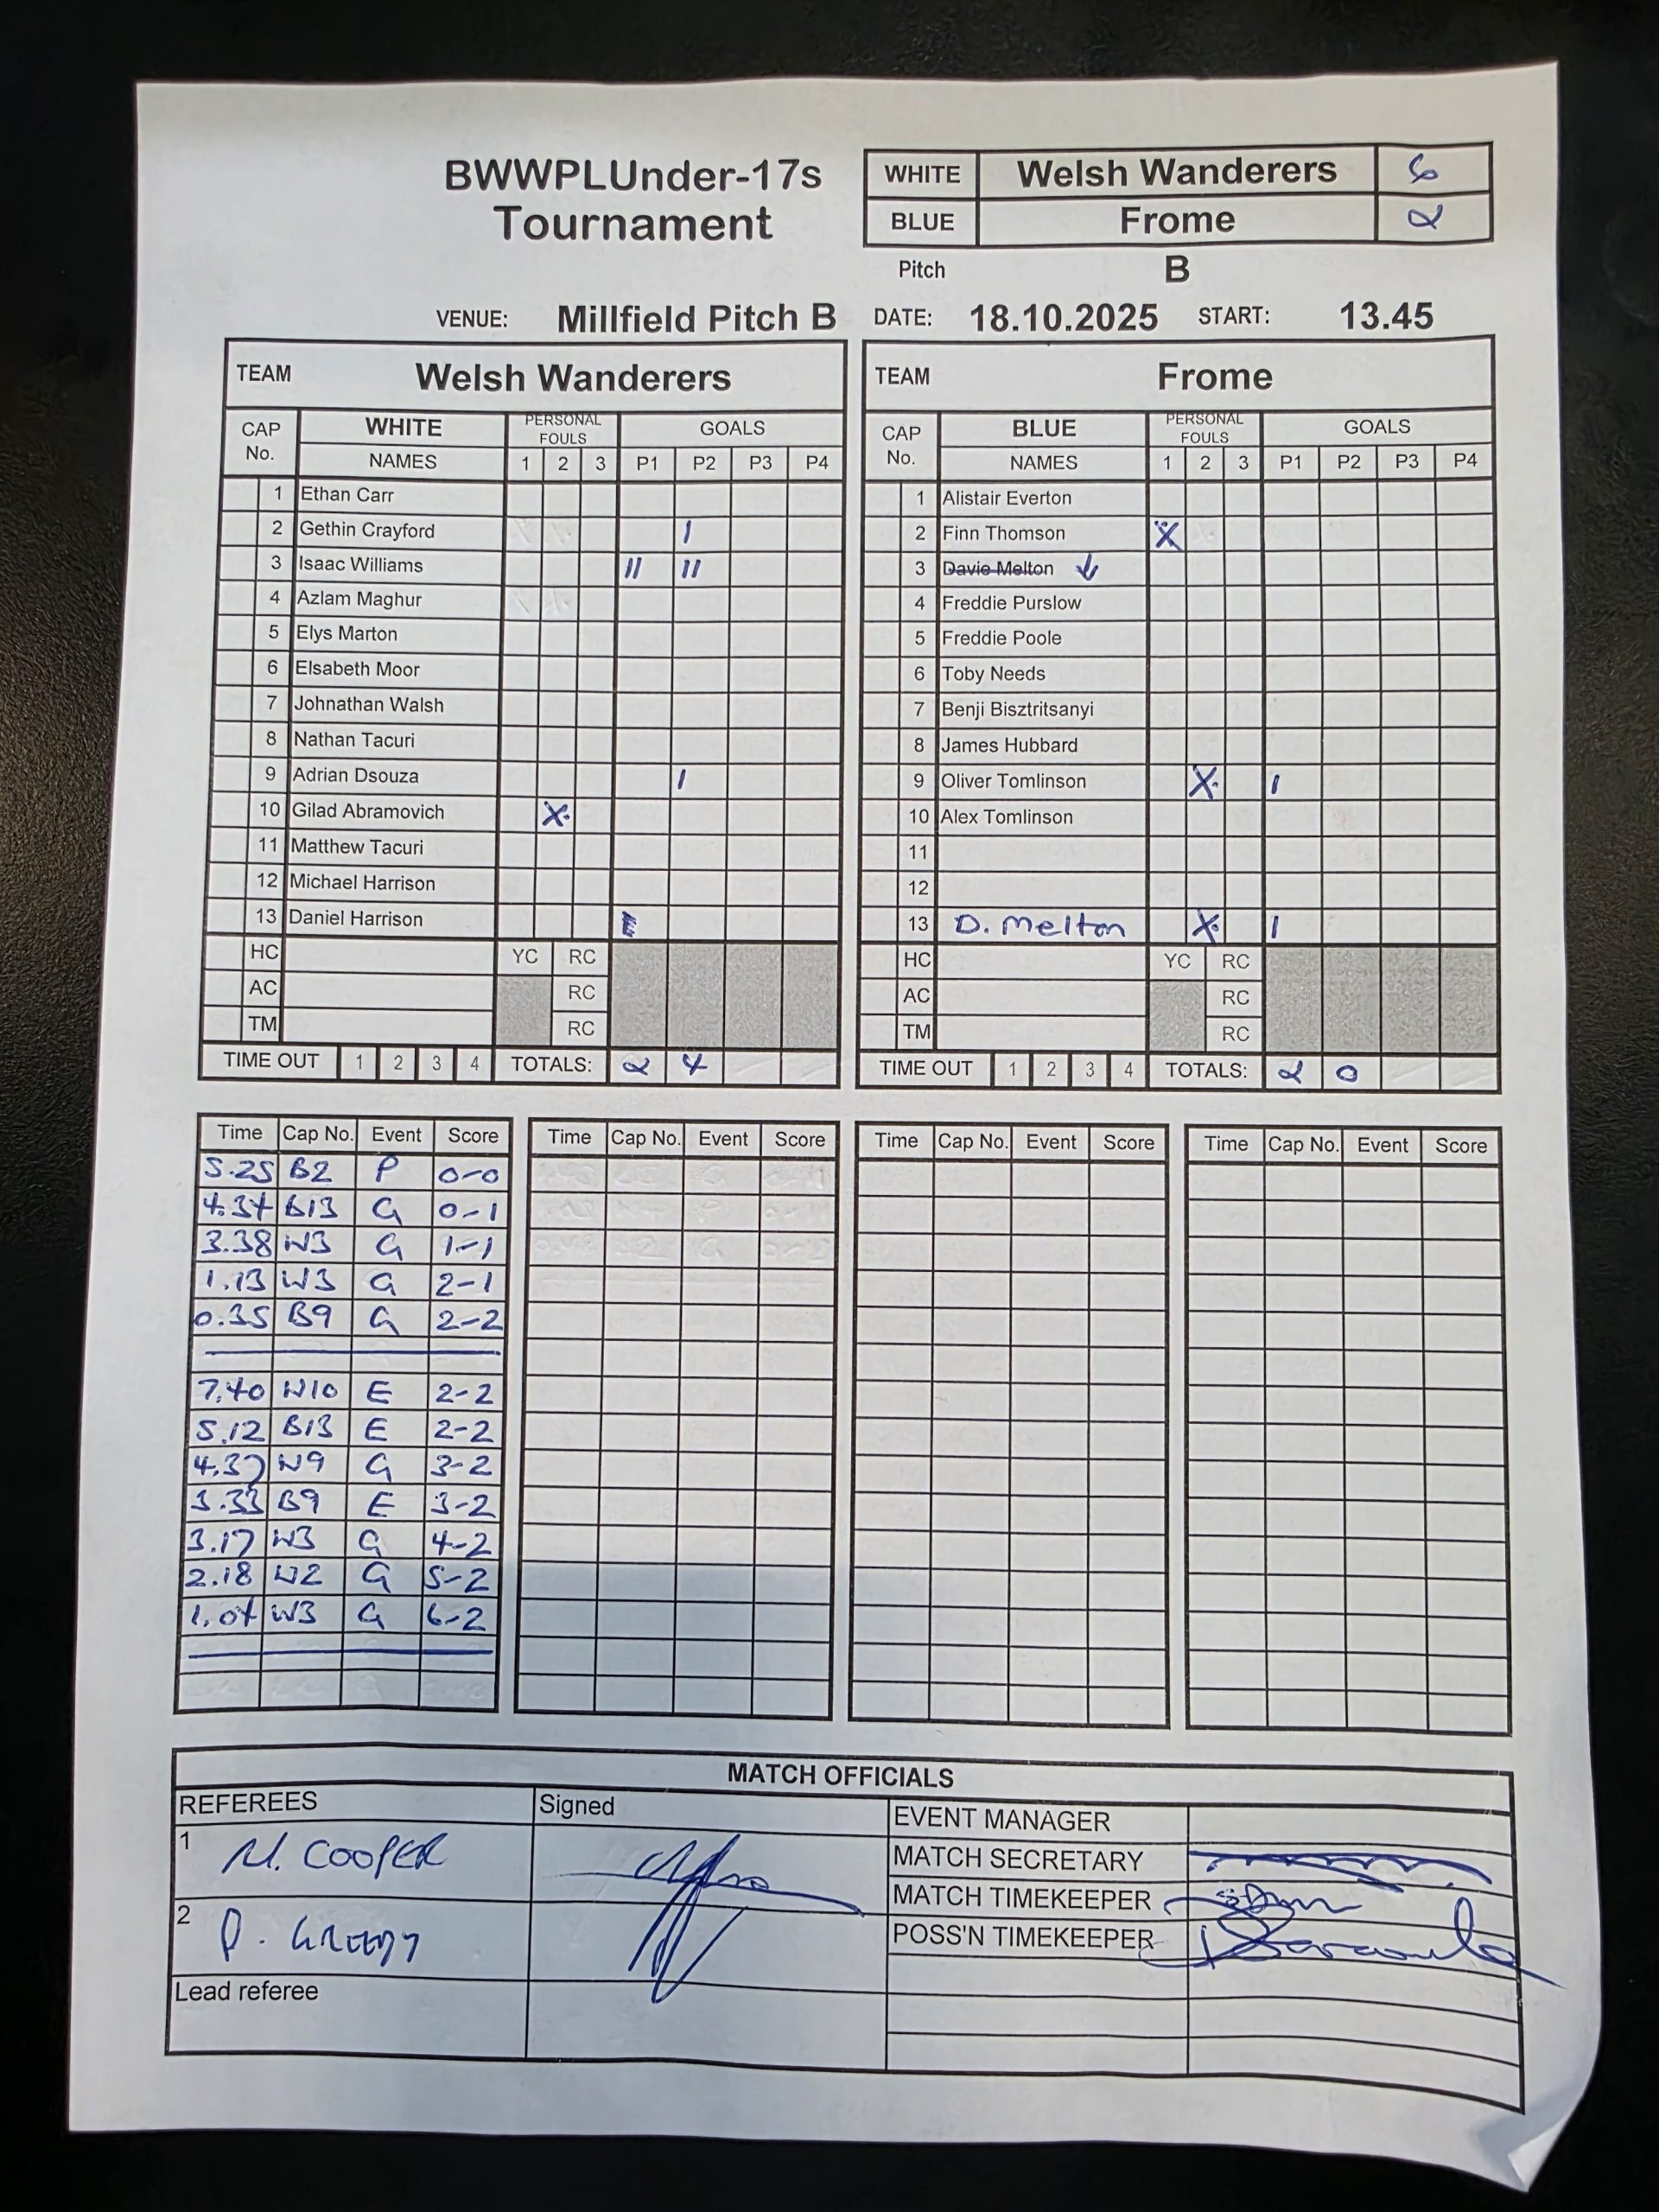 BWWPLUnder-17s
Tournament
WHITE Welsh Wanderers 6
BLUE Frome 2
Pitch B
VENUE: Millfield Pitch B DATE: 18.10.2025 START: 13.45
TEAM Welsh Wanderers
CAP No. WHITE PERSONAL FOULS GOALS
NAMES 1 2 3 P1 P2 P3 P4
1 Ethan Carr
2 Gethin Crayford I
3 Isaac Williams II II
4 Azlam Maghur
5 Elys Marton
6 Elsabeth Moor
7 Johnathan Walsh
8 Nathan Tacuri
9 Adrian Dsouza I
10 Gilad Abramovich X
11 Matthew Tacuri
12 Michael Harrison
13 Daniel Harrison
HC YC RC
AC RC
TM RC
TIME OUT 1 2 3 4 TOTALS: 2 4
TEAM Frome
CAP No. BLUE PERSONAL FOULS GOALS
NAMES 1 2 3 P1 P2 P3 P4
1 Alistair Everton
2 Finn Thomson X
3 Davie Melton ↓
4 Freddie Purslow
5 Freddie Poole
6 Toby Needs
7 Benji Bisztritsanyi
8 James Hubbard
9 Oliver Tomlinson X I
10 Alex Tomlinson
11
12
13 D. Melton X I
HC YC RC
AC RC
TM RC
TIME OUT 1 2 3 4 TOTALS: 2 0
Time Cap No. Event Score
5.25 B2 P 0-0
4.34 B13 G 0-1
3.38 W3 G 1-1
1.13 W3 G 2-1
0.35 B9 G 2-2
7.40 W10 E 2-2
5.12 B13 E 2-2
4.37 W9 G 3-2
3.33 B9 E 3-2
3.17 W3 G 4-2
2.18 W2 G 5-2
1.04 W3 G 6-2
Time Cap No. Event Score
Time Cap No. Event Score
Time Cap No. Event Score
MATCH OFFICIALS
REFEREES Signed
1 M. COOPER
2
Lead referee
EVENT MANAGER
MATCH SECRETARY
MATCH TIMEKEEPER
POSS'N TIMEKEEPER